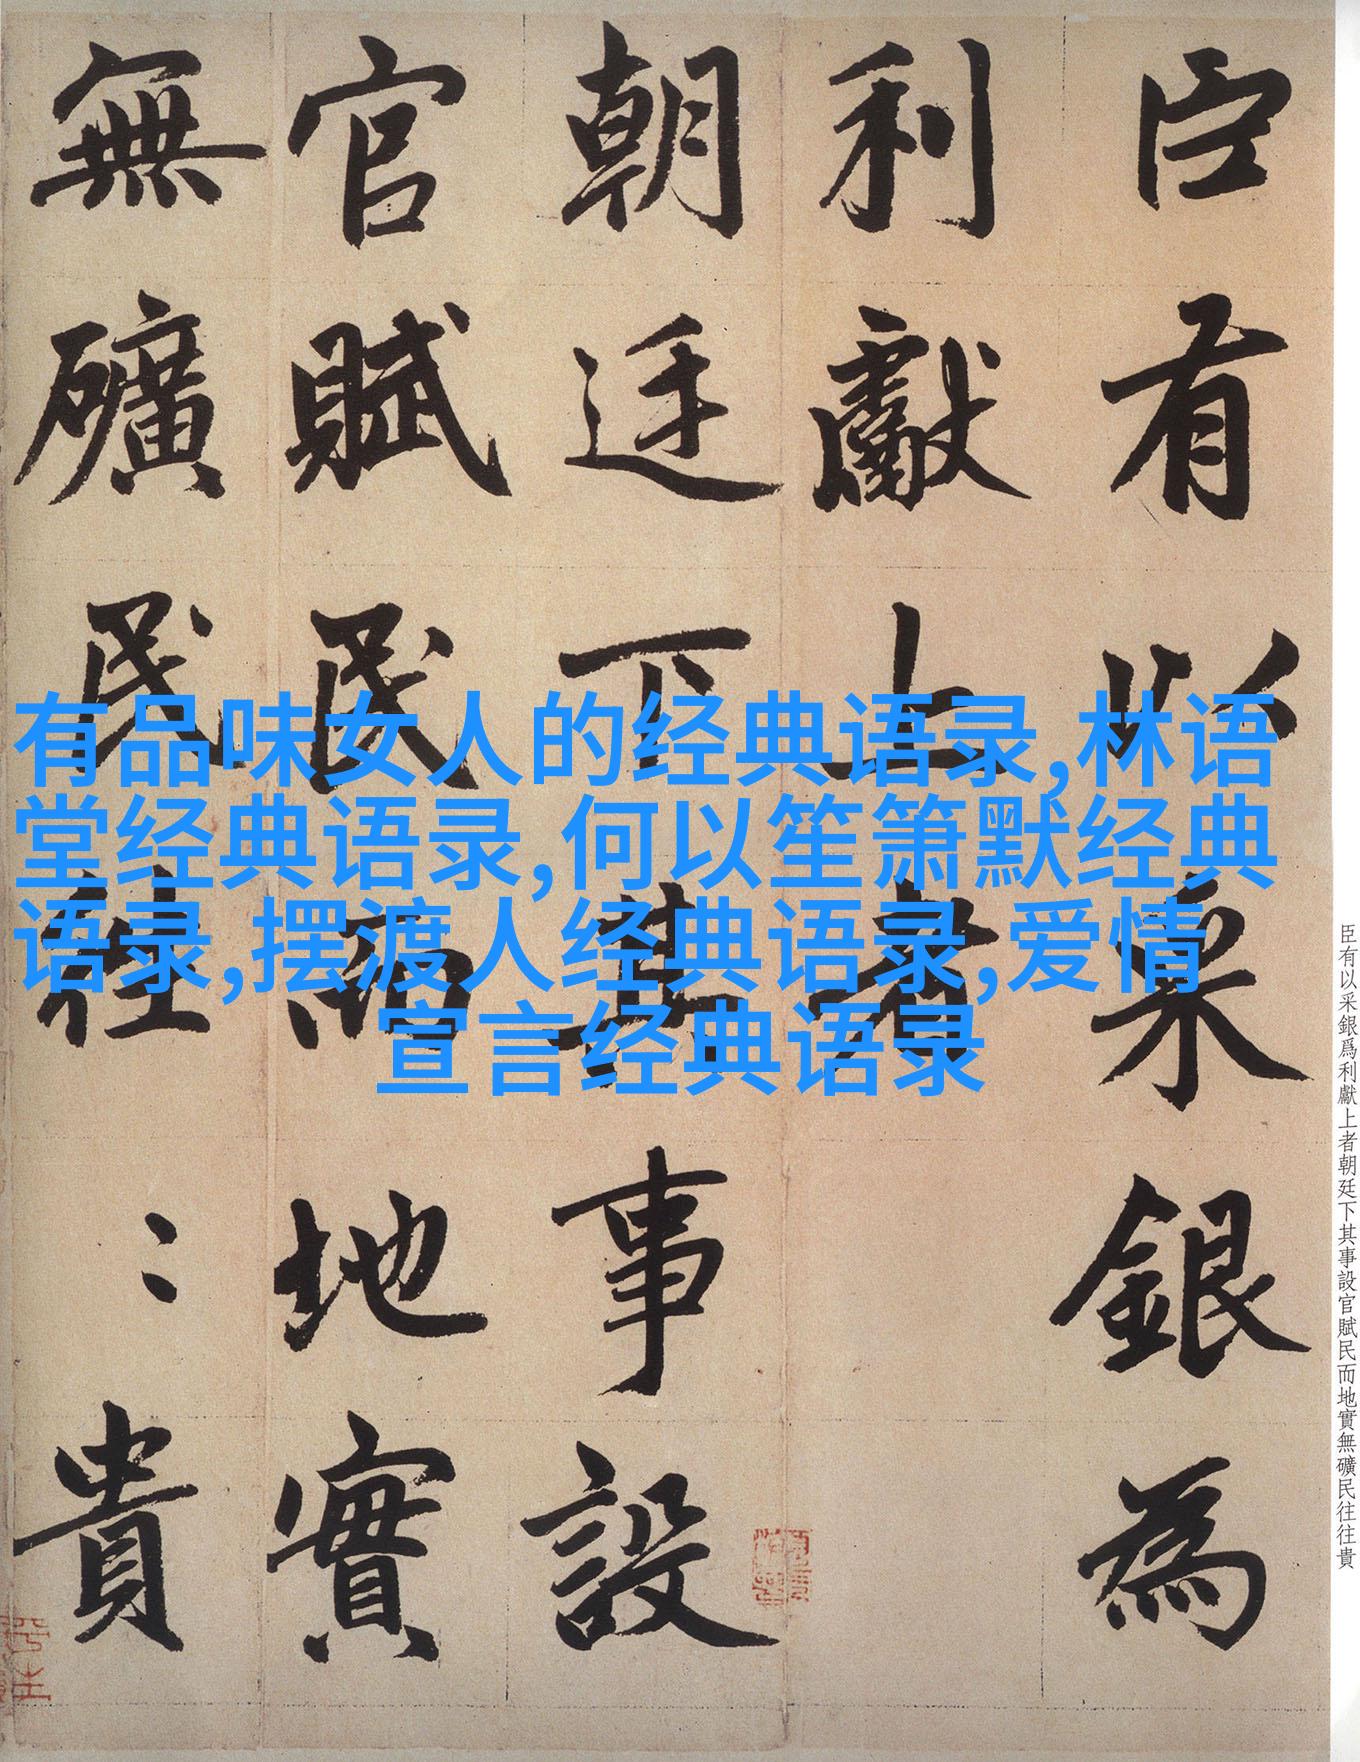 臣有以采銀為
利獻上者
朝廷下其事設
官賦民而地實
無礦民往〻貴
有品味女人的经典语录,林语
堂经典语录,何以笙箫默经典
语录,摆渡人经典语录,爱情
宣言经典语录
臣有以采銀爲利獻上者朝廷下其事設官賦民而地實無礦民往往貴